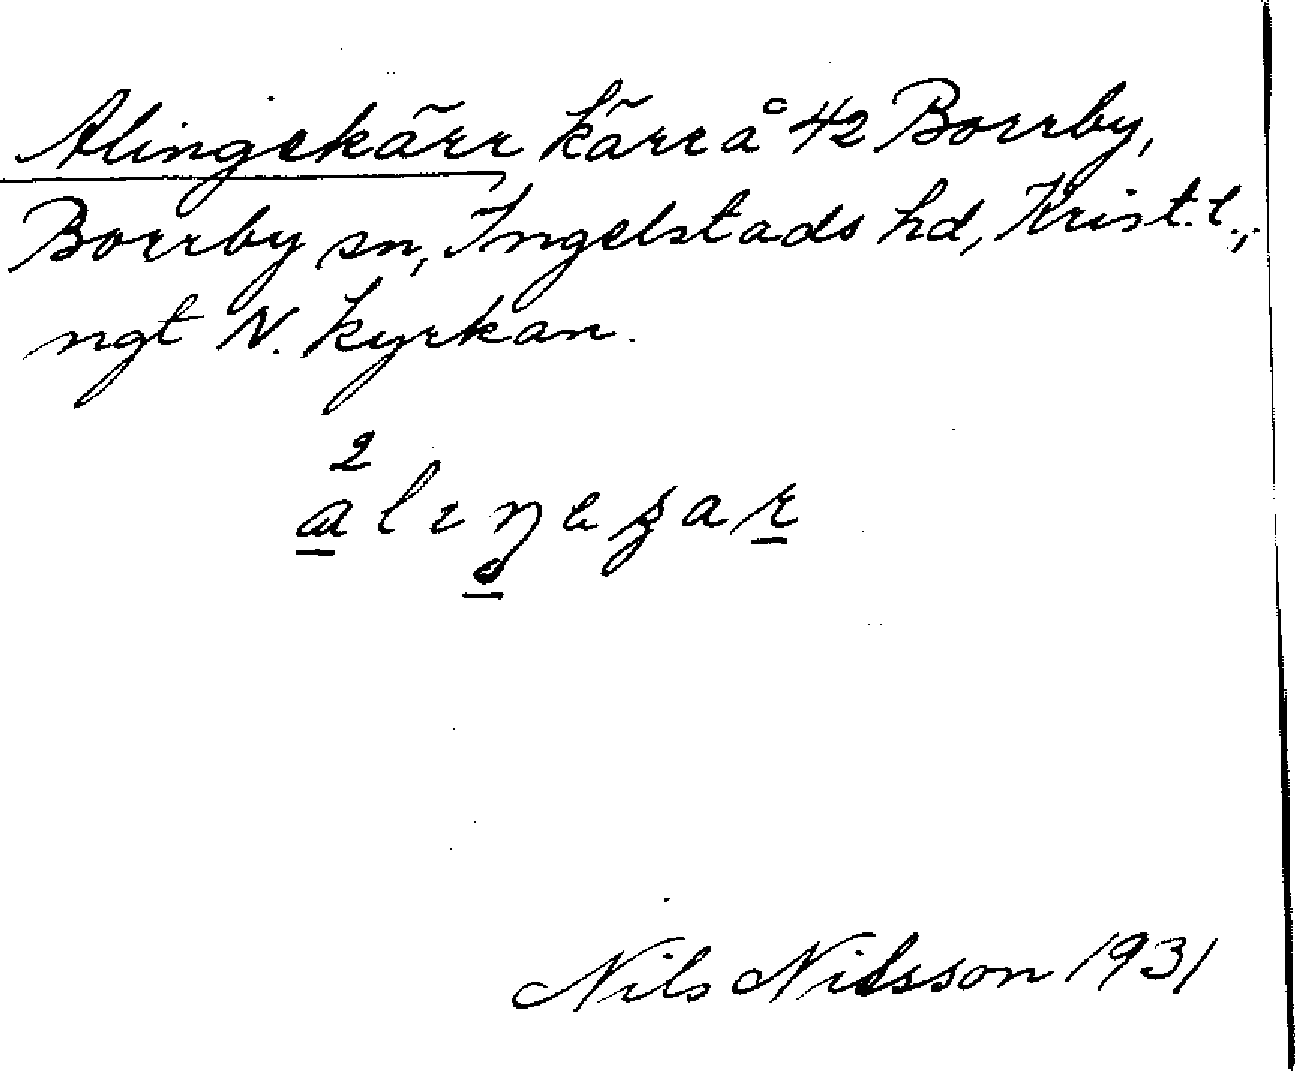 Alingekärr kärr å 42 Borrby,
Borrby sn, Ingelstads hd, Krist. l.,
ngt N. kyrkan.
Nils Nilsson 1931